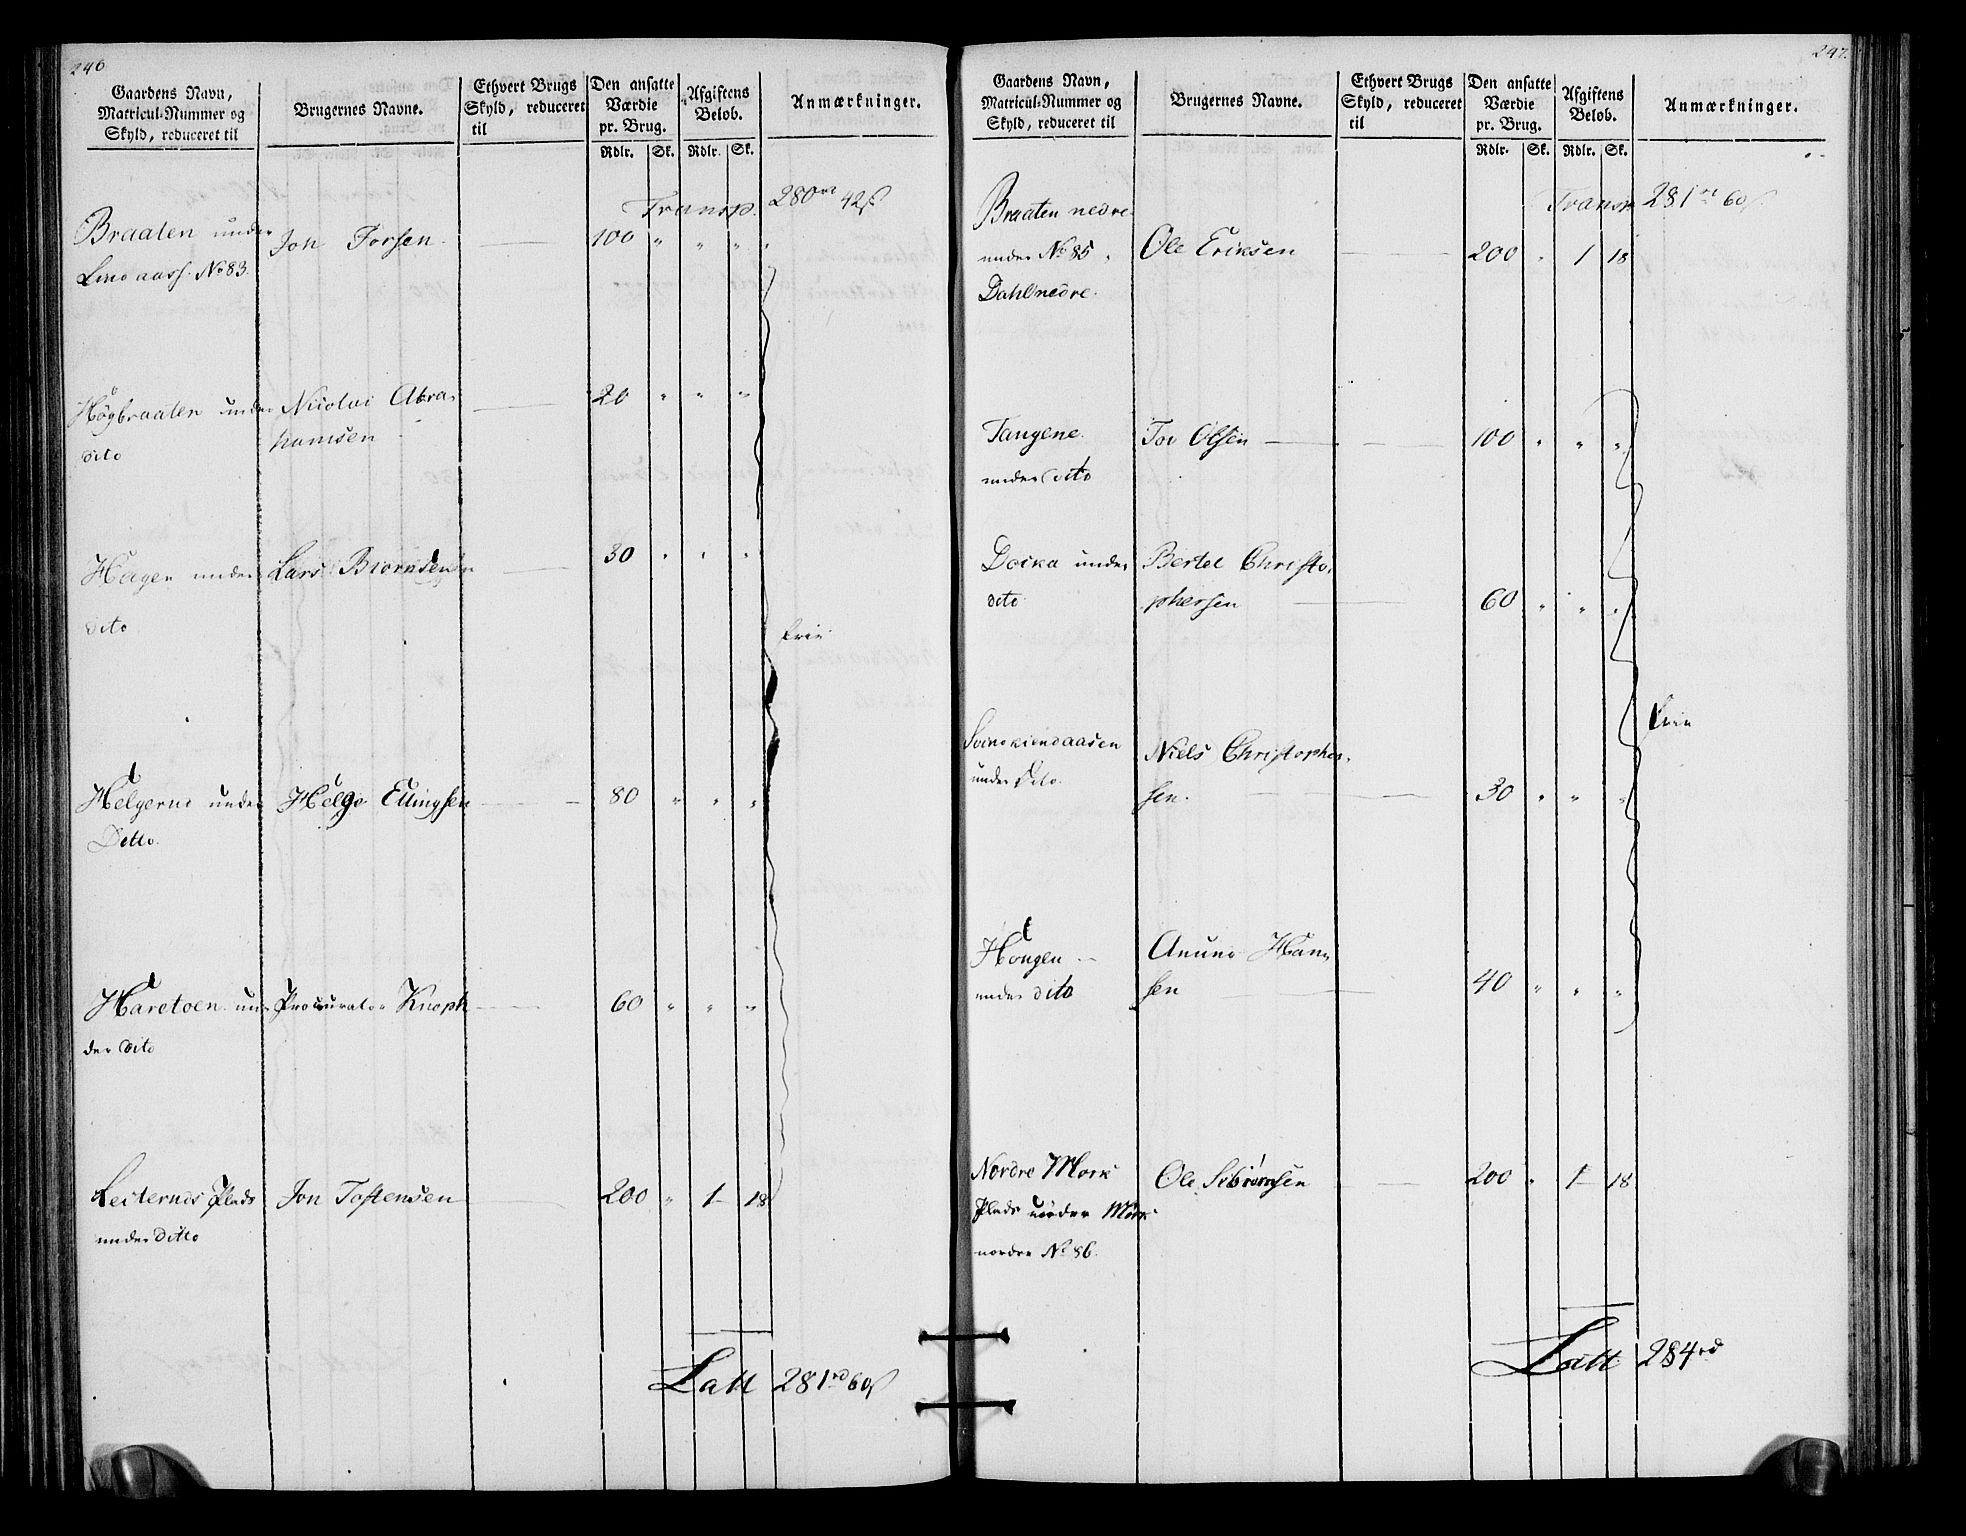 246.
Gaardens Navn,
Matricul-Nummer og
Skyld, reduceret til
Brugernes Navne.
Ethvert Brugs
Skyld, reduceret
til
Den ansatte
Værdie
pr. Brug.
Afgiftens
Beløb.
Anmærkninger.
Rdlr. Sk. Rdlr. Sk.
Transp. 280 rd 42 s
Braaten under Jon Torsen. 100 " " "
No 83.
Høgbraaten under Nicolai Abra- 20 " " "
hamsen
dito
Hagen under Lars Biørnsen 30 " " "
dito
frie
Helgerud under Helge Ellingsen 80 " " "
Ditto.
Haretoen un- Procurator Knoph 60 " " "
der dito
Plads Jon Tostensen 200 " 1 18
under Ditto
Latt 281 rd 60 s
247.
Gaardens Navn,
Matricul-Nummer og
Skyld, reduceret til
Brugernes Navne.
Ethvert Brugs
Skyld, reduceret
til
Den ansatte
Værdie
pr. Brug.
Afgiftens
Beløb.
Anmærkninger.
Rdlr. Sk. Rdlr. Sk.
Transp 281 rd 60 s
Braaten nedre
under No 85 Ole Eriksen 200 " 1 18
Dahl nedre.
Tangene Tov Olsen 100 " " "
under dito
Docka under Bertel Christo-
dito phersen 60 " " "
frie
under dito. Niels Christopher-
sen. 30 " " "
Hougen Anund Han-
under dito sen 40 " " "
Nordre Mørk Ole 200 " 1 18
Plads under Mørk
nordre No 86.
Latt 284 rd